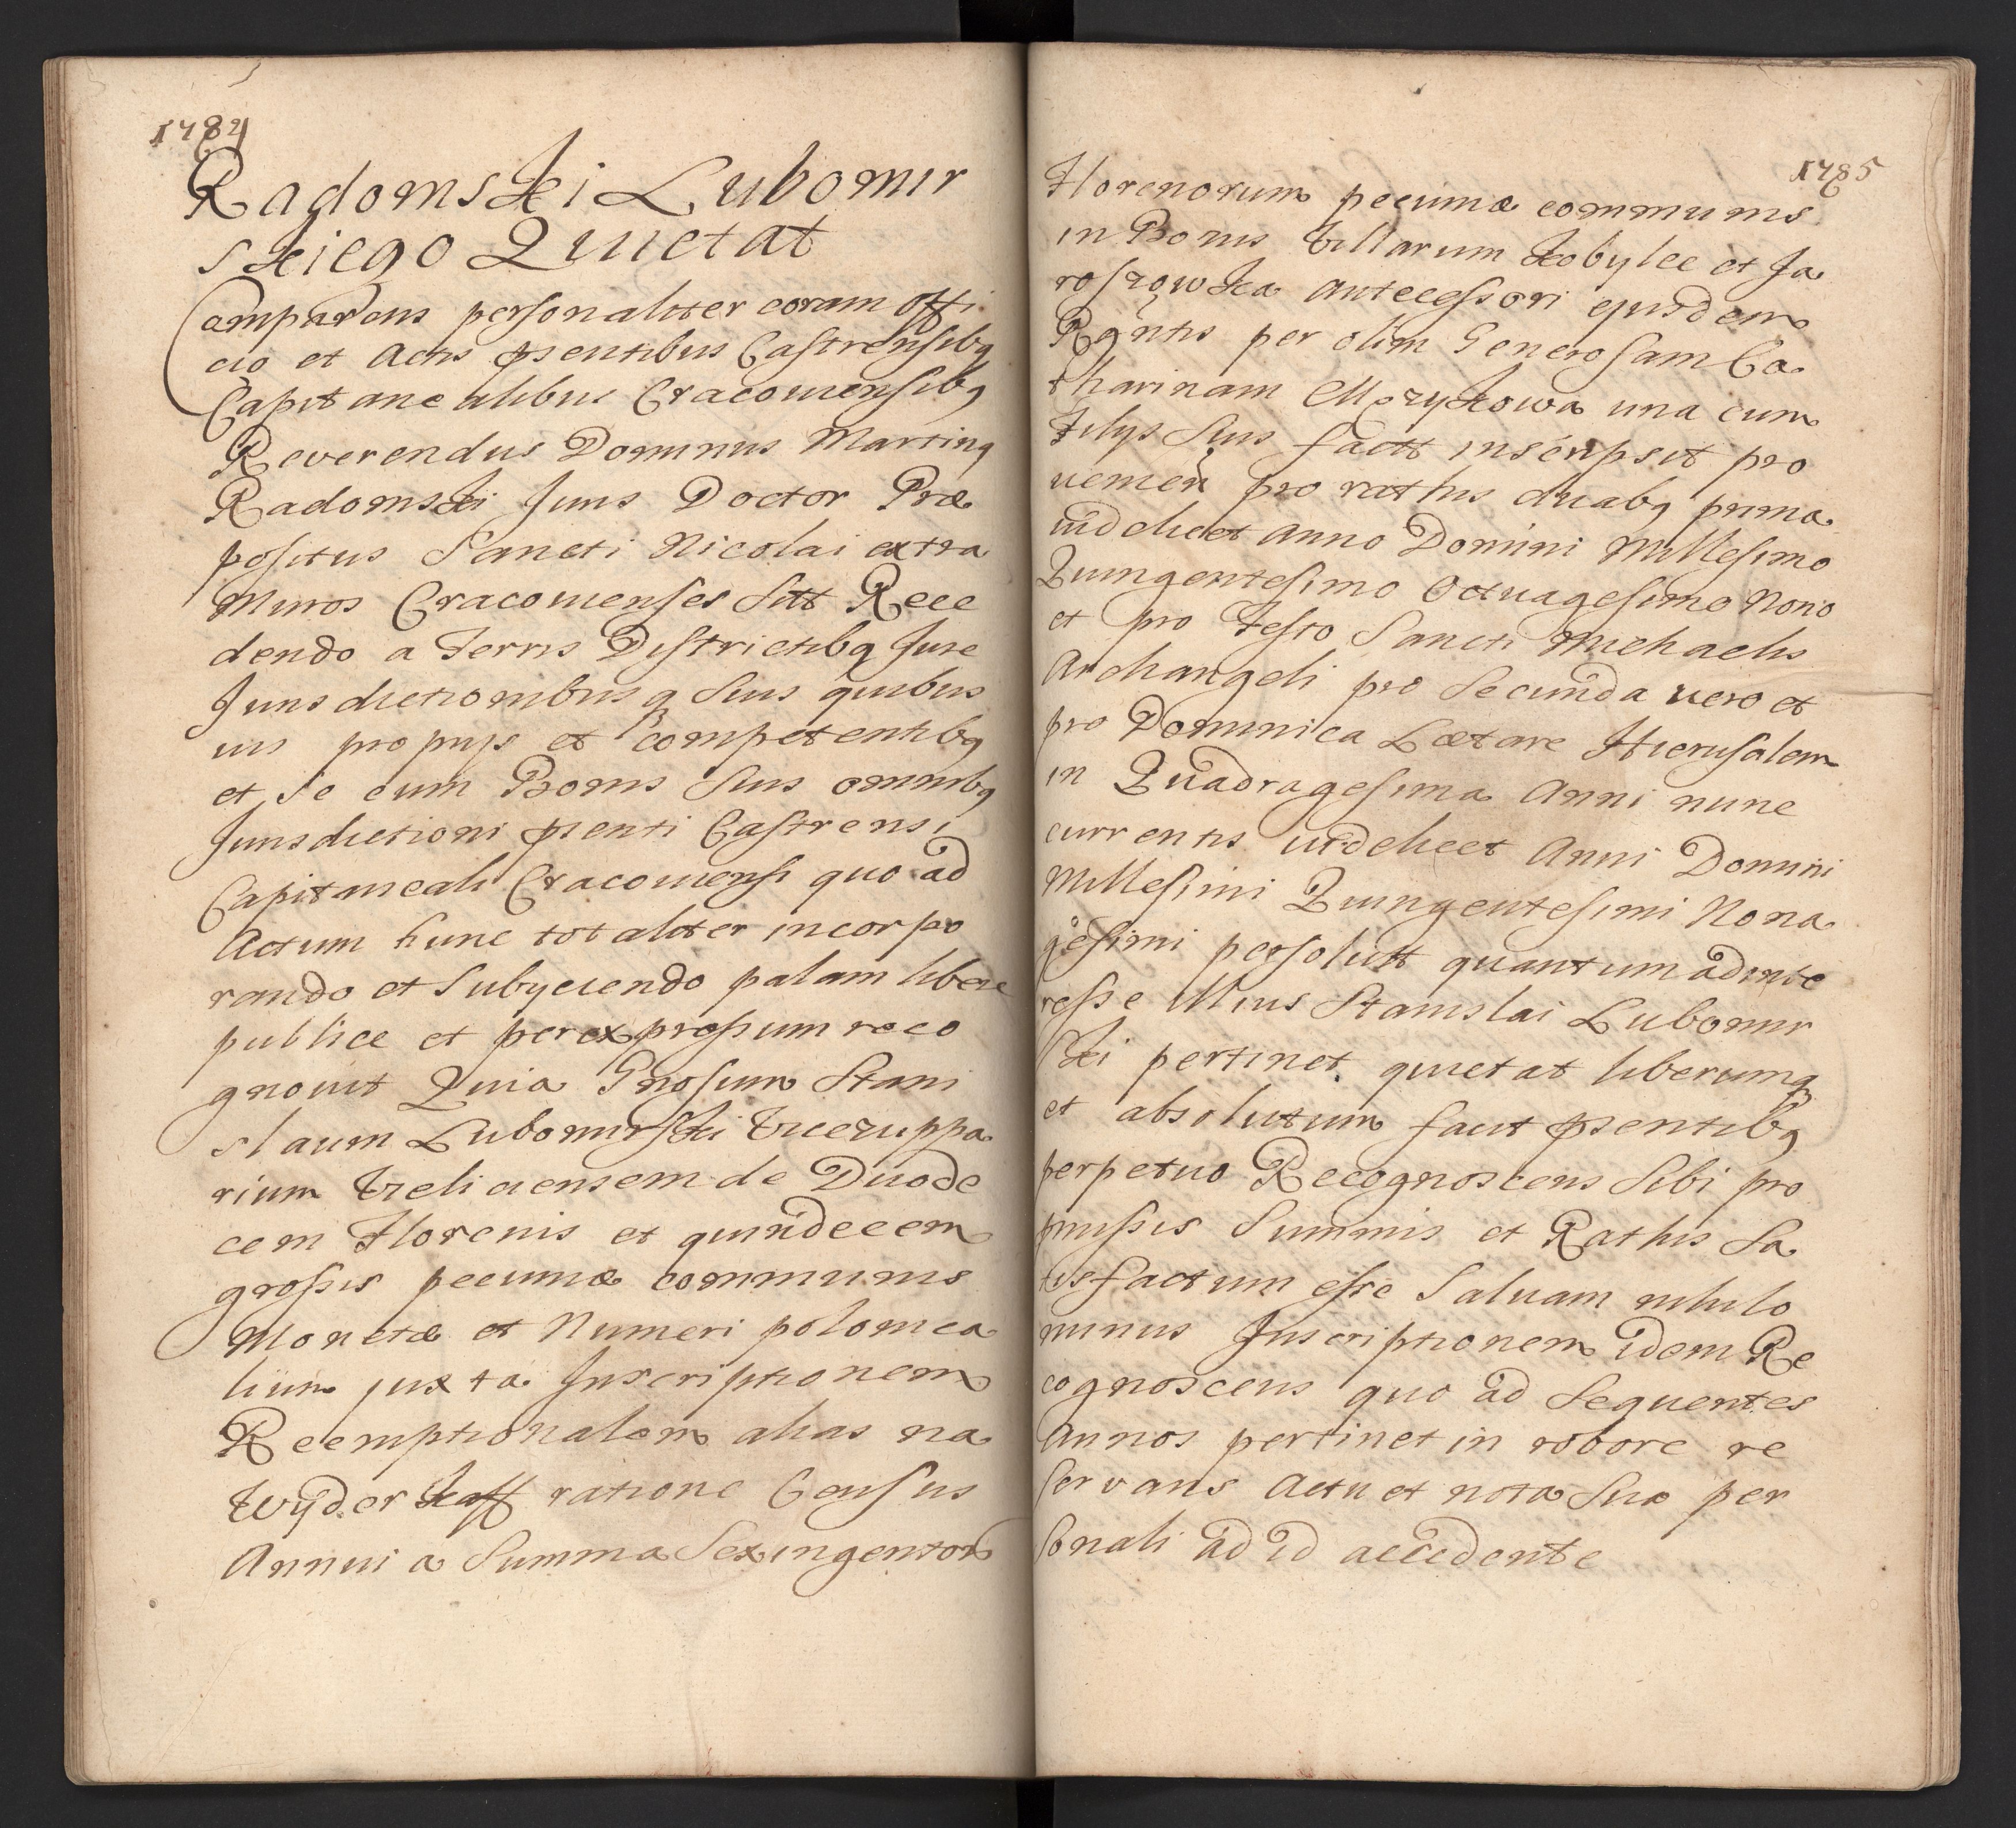 1784
Radomski Lubomir
skiego Quietat
Comparens personaliter coram Offi
cio et Actis pñentibus Castrensibq
Capitanealibus Cracouiensibq
Reverendus Dominus Martinq
Radomski Juris Doctor Præ
positus Sancti Nicolai extra
Muros Cracouienses Sitt Rece
dendo a Terris Districtibq Jure
Jurisdictionibusq Suis quibus
uis proprijs et Competentibq
et Se cum Bonis Suis omnibq
Jurisdictioni pñenti Castrensi
Capitaneali Cracouiensi quo ad
Actum hunc totaliter incorpo
rando et Subyciendo palam libere
publice et per expressum reco
gnouit Quia Gnosum Stani
slaum Lubomirski Vicezuppa
rium Vieliciensem de Duode
cem Florenis et quindecem
grossis pecuniæ communis
Monetæ et Numeri polonica
lium juxta Inscriptionem
Reemptionalem alias na
Wyderkaff ratione Census
Annui a Summa Sexingentor
1785
Florenorum pecuniæ communis
in Bonis Villarum Kobylec et Ja
roszowka Antecessori eiusdem
Rgñtis per olim Generosam Ca
tharinam Mezykowa una cum
Filys Suis factt inscripsit pro
uenien pro rathis duabq prima
uidelicet Anno Domini Millesimo
Quingentesimo Octuagesimo Nono
et pro Festo Sancti Michaelis
Archangeli pro Secunda uero et
pro Dominica Lætare Hierusalem
in Quadragesima Anni nunc
currentis uidelicet Anni Domini
Millesimi Quingentesimi Nona
gesimi persolutt quantum ad inte
resse illius Stanislai Lubomir
ski pertinet quietat liberumq
et absolutum facit pñentibq
perpetuo Recognoscens Sibi pro
pmissis Summis et Rathis Sa
tisfactum esse Saluam nihilo
minus Inscriptionem idem Re
cognoscens quo ad Sequentes
Annos pertinet in robore re
servans Actu et nota Sua per
sonali ad id accedente